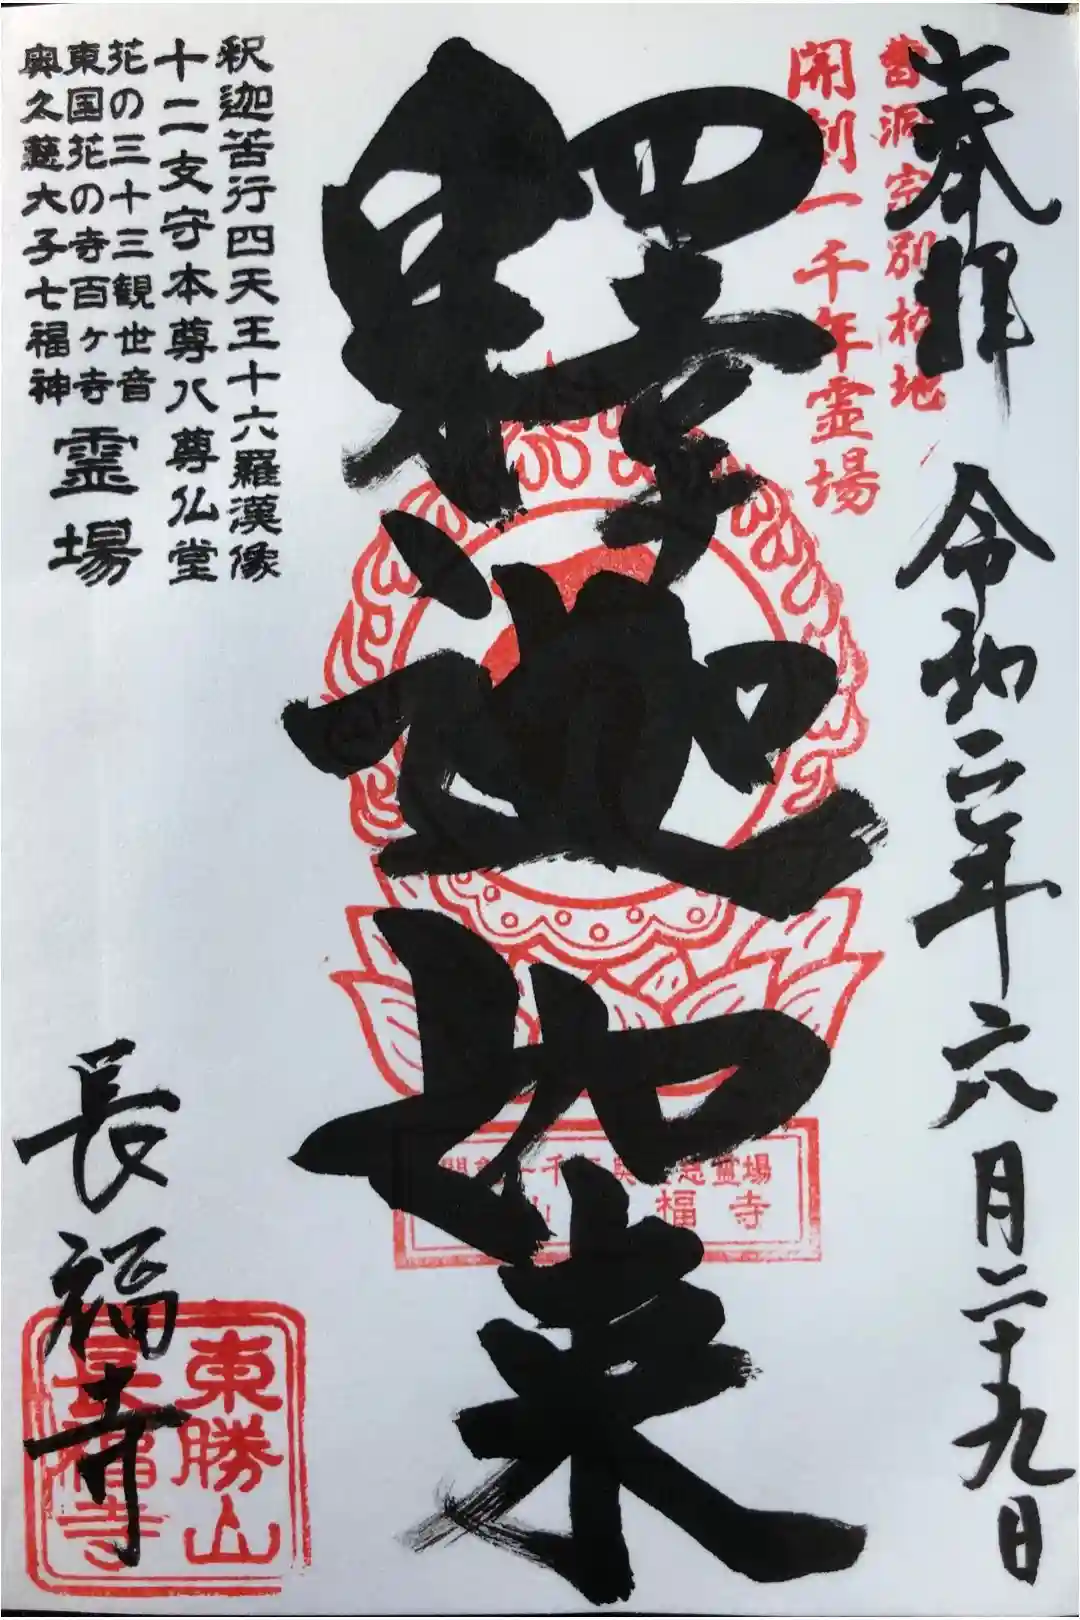 奉拝
令和二年六月二十九日
曹洞宗別格地
開創一千年霊場
釋迦如来
開創一千年奥久慈霊場
福寺
釈迦苦行四天王十六羅漢像
十二支守本尊八尊仏堂
花の三十三観世音
東国花の寺百ヶ寺
奥久慈大子七福神
霊場
長福寺
東勝山
長福寺